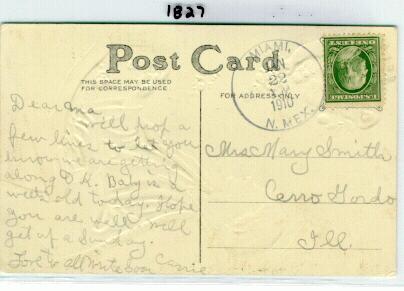 1827
Post Card
THIS SPACE MAY BE USED
FOR CORRESPONDENCE
FOR ADDRESS ONLY
MIAMI,
22
1910
N. MEX.
ONE CENT
Dear Ma
Will drop a
few lines to let you
know we are getting
along O.K. Baby is a
week old today. Hope
you are well. Will
get up a Sunday.
Love to all Write soon Carrie
Mrs Mary Smith
Cerro Gordo
Ill.